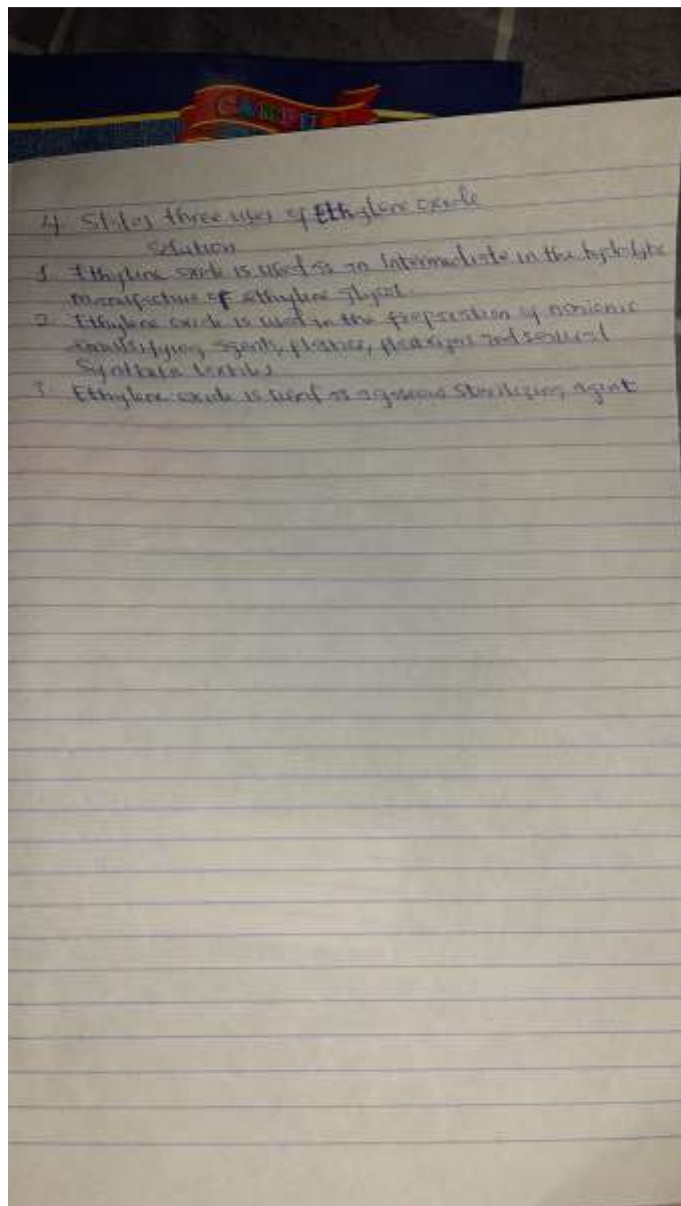 4 States three uses of Ethylene oxide
Solution
1 Ethylene oxide is used as an Intermediate in the hydrolytic
manufacture of ethylene glycol
2 Ethylene oxide is used in the preparation of nonionic
emulsifying agents, plastics, plasticizers and several
Synthetic textiles
3 Ethylene oxide is used as a gaseous Sterilizing agent